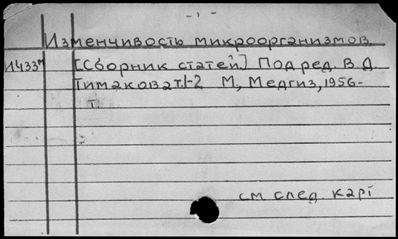 - 1 -
Изменчивость микроорганизмов.
И433м [Сборник статей.] Под ред. В.Д.
Тимакова т.1-2 М, Медгиз, 1956-
т.
см след. карт